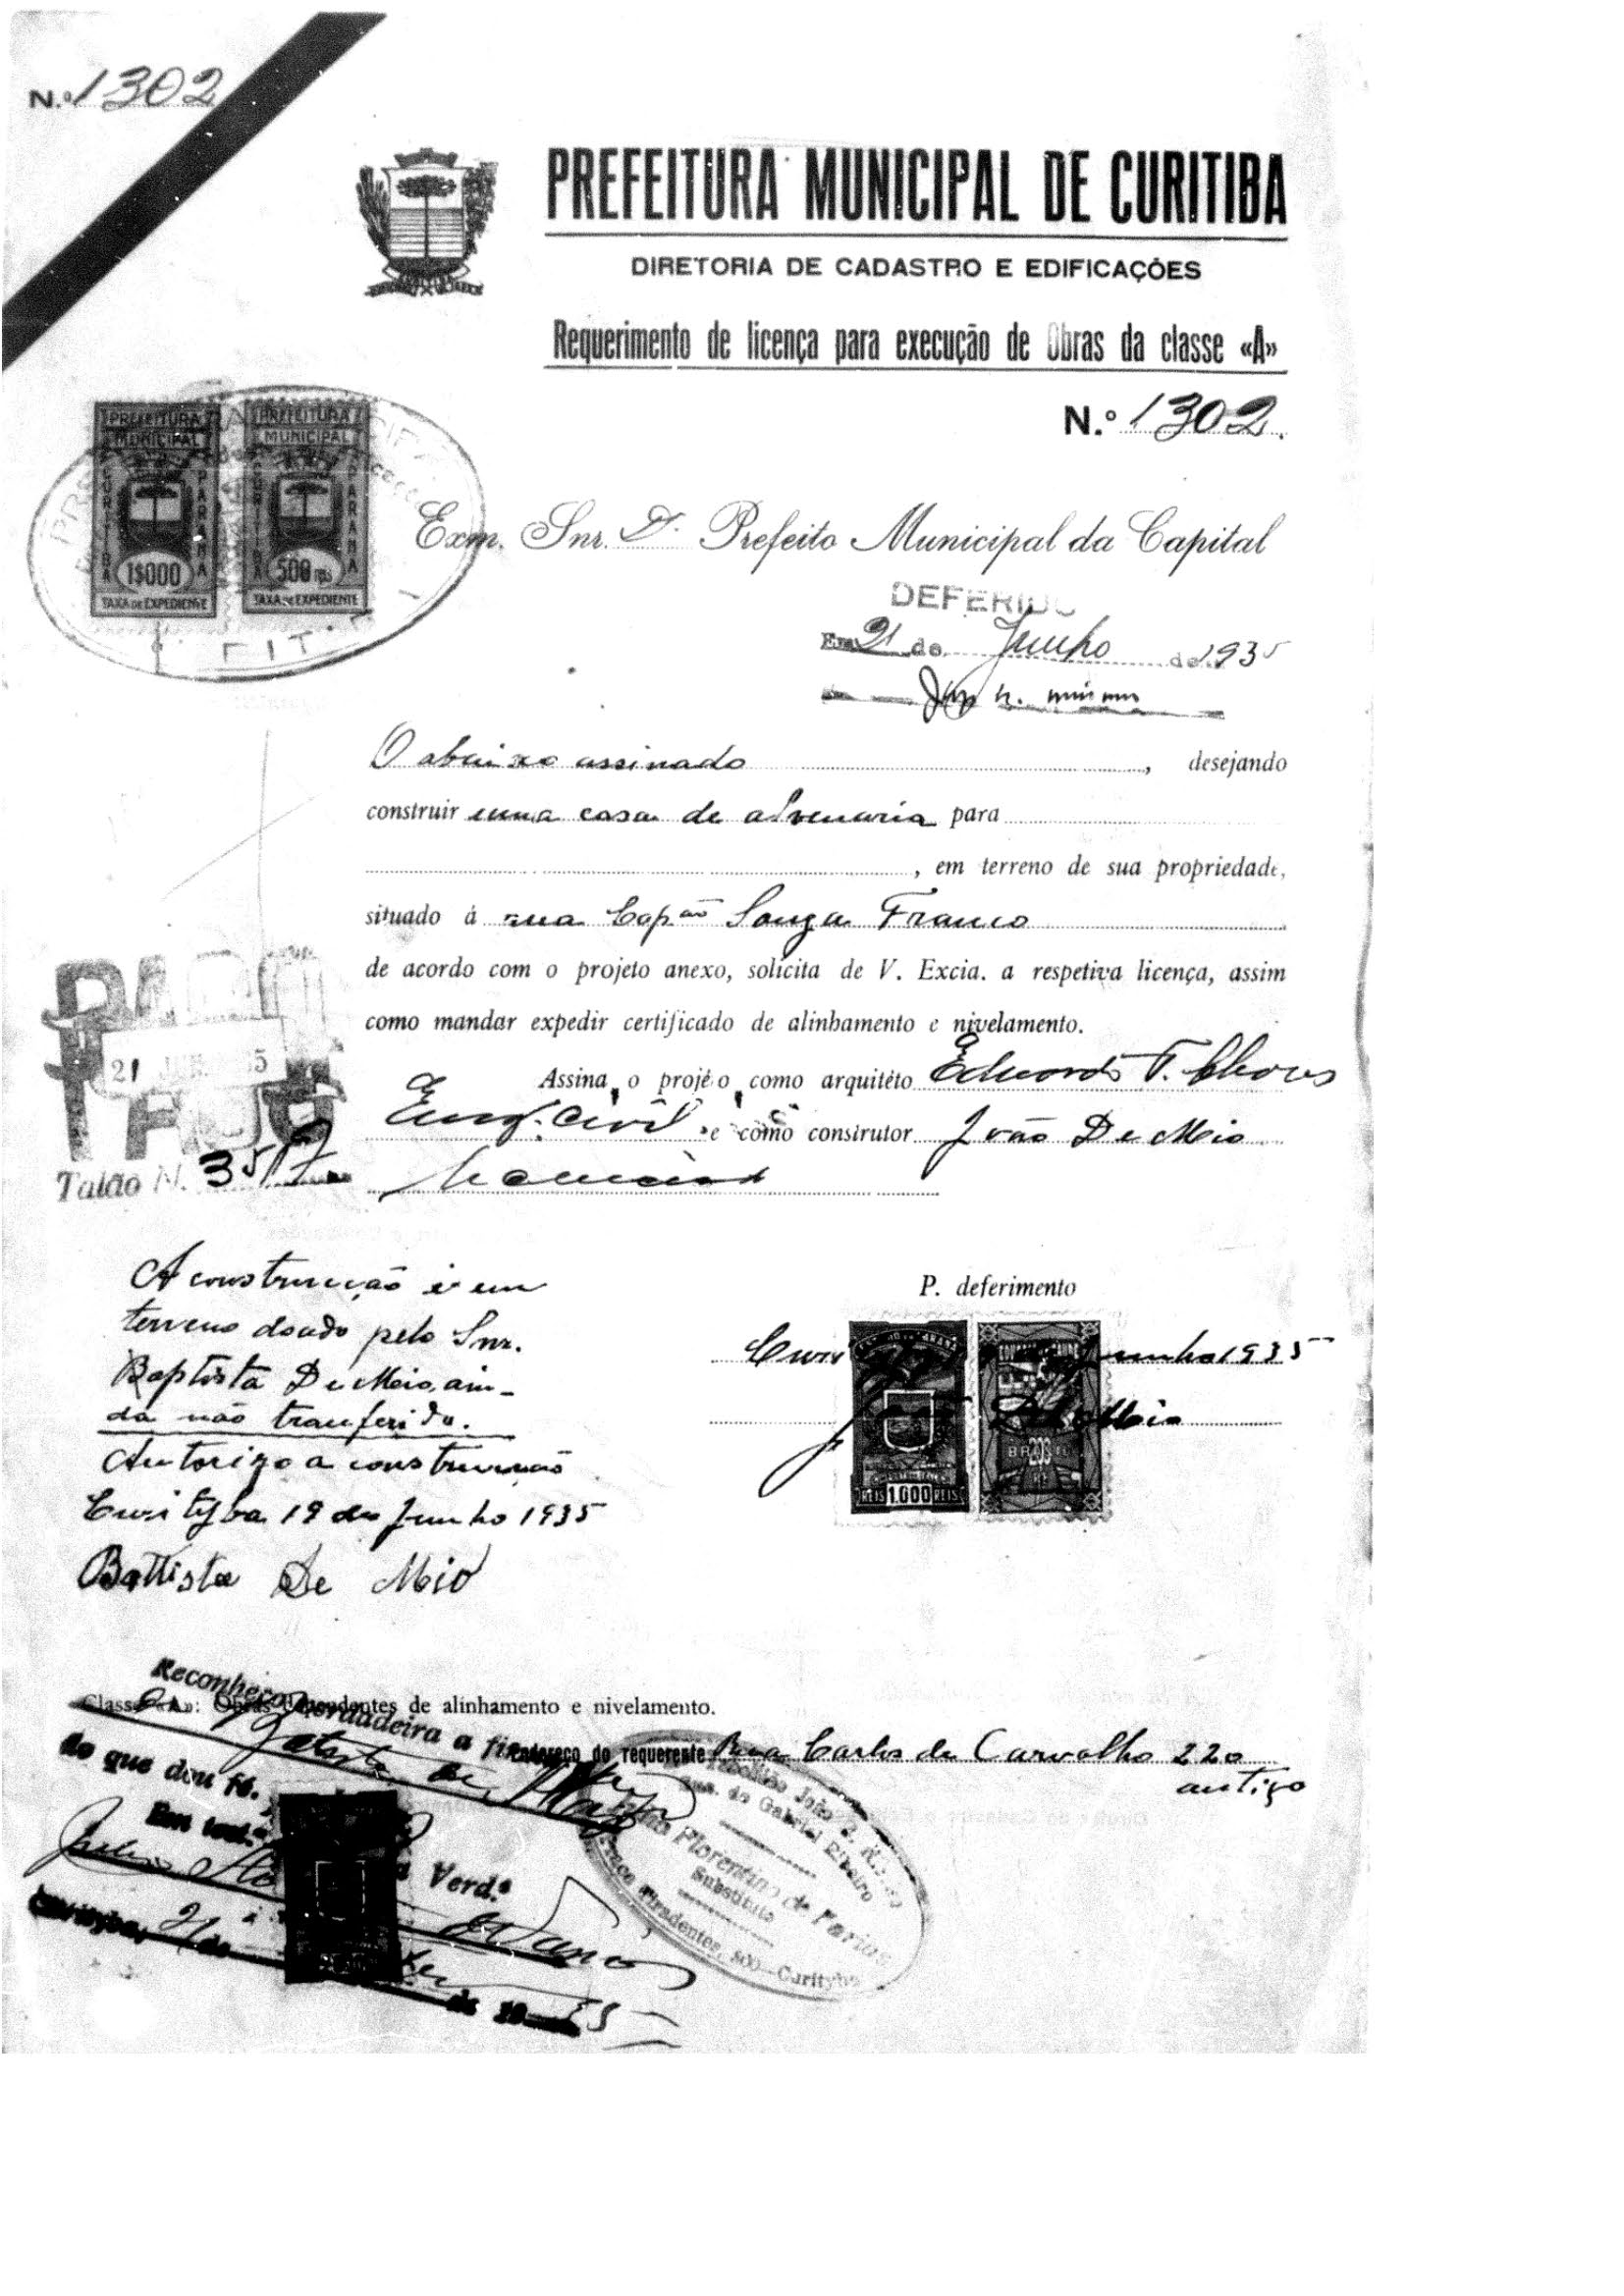 N.º 1302
PREFEITURA MUNICIPAL DE CURITIBA
DIRETORIA DE CADASTRO E EDIFICAÇÕES
Requerimento de licença para execução de Obras da classe «A»
N.º 1302.
PREFEITURA MUNICIPAL
CURITIBA PARANÁ
1$000
TAXA DE EXPEDIENTE
PREFEITURA MUNICIPAL
CURITIBA PARANÁ
500 rs
TAXA DE EXPEDIENTE
Exm. Snr. D. Prefeito Municipal da Capital
DEFERIDO
Em 21 de Junho de 1935
O abaixo assinado, desejando
construir uma casa de alvenaria para
, em terreno de sua propriedade,
situado á rua Capão Souza Franco
de acordo com o projeto anexo, solicita de V. Excia. a respetiva licença, assim
como mandar expedir certificado de alinhamento e nivelamento.
Assina o projéto como arquitéto Eduardo F. Chaves
Eng. Civil e como construtor João De Meio
PAGO
21 JUN 35
Talão N. 35
A construcção é em
terreno doado pelo Snr.
Baptista De Meio, ain-
da não tranferido.
Autorizo a construcção
Curityba 19 de Junho 1935
Battista De Meio
P. deferimento
Junho 1935
REIS 1.000 REIS
BRASIL
200
Reconheço verdadeira a
Classe «A»: Obras dependentes de alinhamento e nivelamento.
Endereço do requerente Rua Carlos de Carvalho 220
antigo
do que dou fé.
Em test.º da Verd.e
Curityba, 21 de
de 19 35
Tabellião João
Gabriel Ribeiro
Florentino de Farias
Substituto
Praça Tiradentes, 500 - Curityba